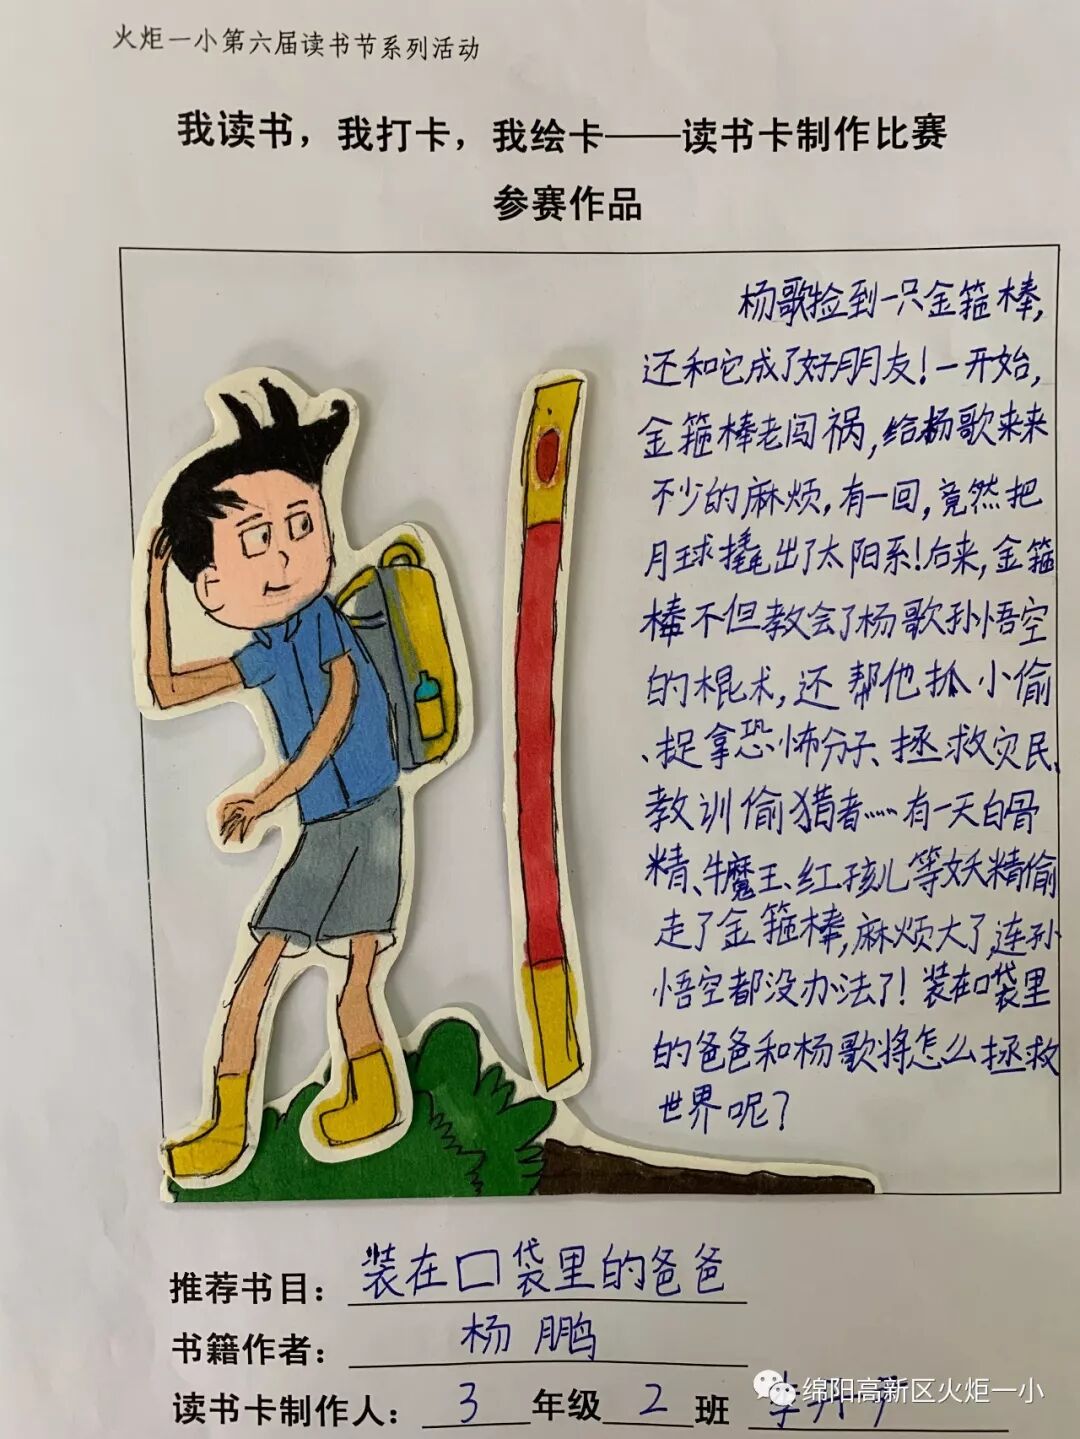 火炬一小第六届读书节系列活动
我读书，我打卡，我绘卡——读书卡制作比赛
参赛作品
杨歌捡到一只金箍棒，
还和它成了好朋友！一开始，
金箍棒老闯祸，给杨歌来来
不少的麻烦，有一回，竟然把
月球撬出了太阳系！后来，金箍
棒不但教会了杨歌孙悟空
的棍术，还帮他抓小偷
、捉拿恐怖分子、拯救灾民、
教训偷猎者……有一天白骨
精、牛魔王、红孩儿等妖精偷
走了金箍棒，麻烦大了，连孙
悟空都没办法了！装在口袋里
的爸爸和杨歌将怎么拯救
世界呢？
推荐书目：装在口袋里的爸爸
书籍作者：杨鹏
读书卡制作人：3年级2班
绵阳高新区火炬一小